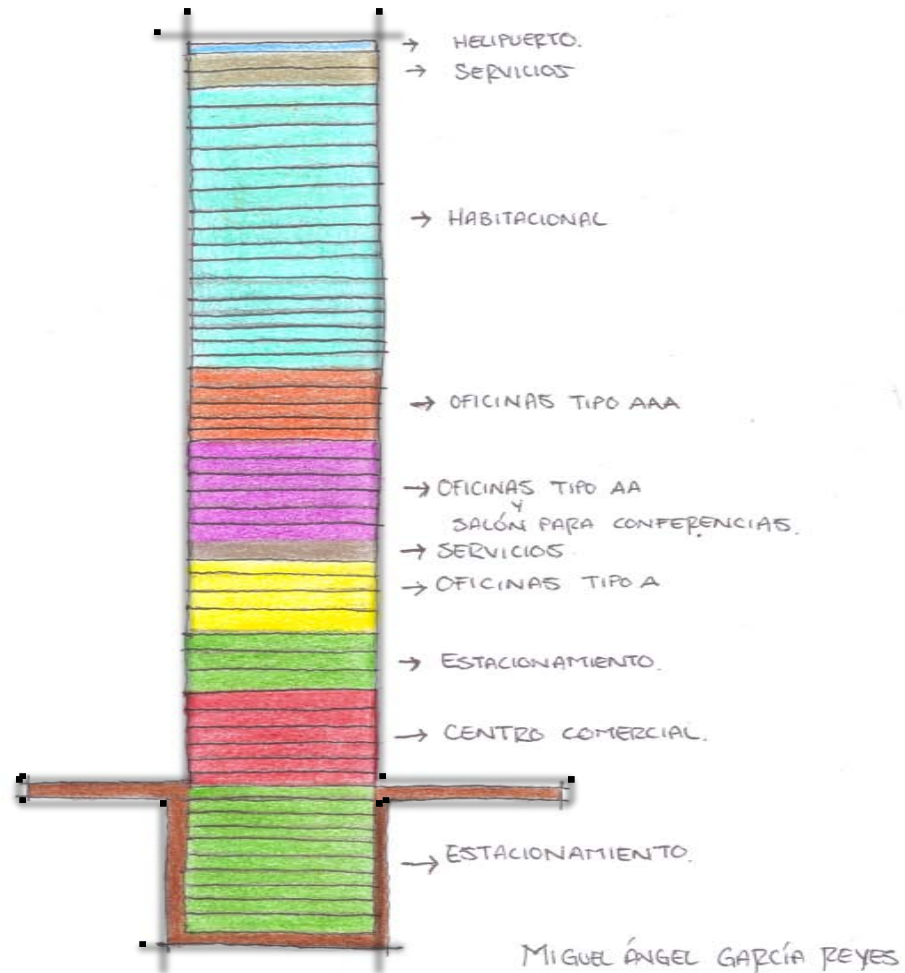 HELIPUERTO.
SERVICIOS
HABITACIONAL
OFICINAS TIPO AAA
OFICINAS TIPO AA
Y
SALÓN PARA CONFERENCIAS.
SERVICIOS
OFICINAS TIPO A
ESTACIONAMIENTO.
CENTRO COMERCIAL.
ESTACIONAMIENTO.
MIGUEL ÁNGEL GARCÍA REYES